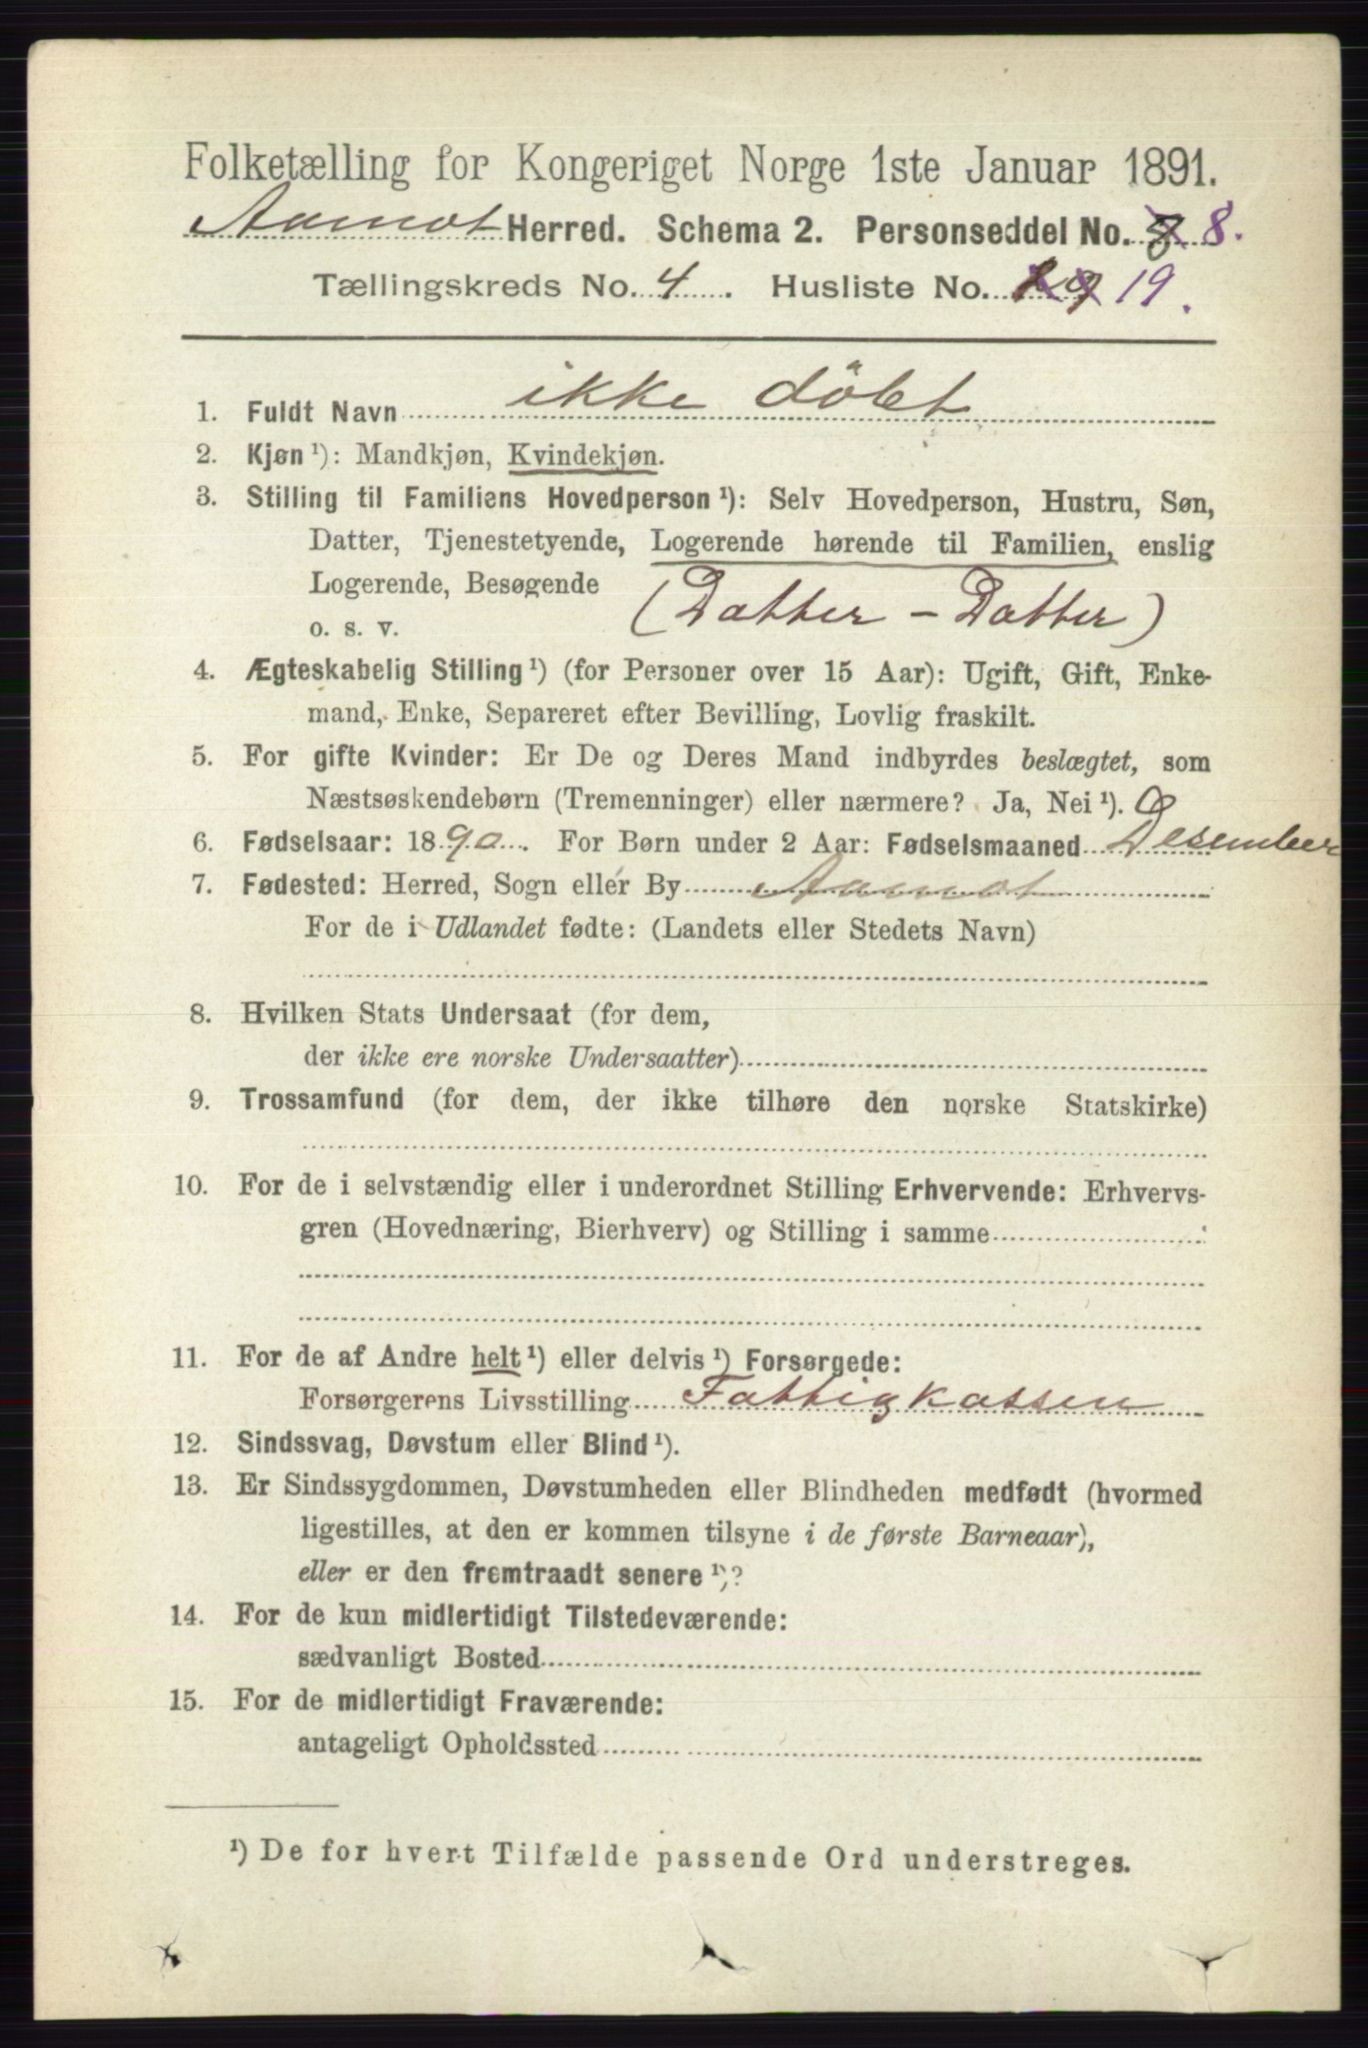 Folketælling for Kongeriget Norge 1ste Januar 1891.
Aamot Herred. Schema 2. Personseddel No. 8.
Tællingskreds No. 4. Husliste No. 19.
1. Fuldt Navn ikke döbt
2. Kjøn ¹): Mandkjøn, Kvindekjøn.
3. Stilling til Familiens Hovedperson ¹): Selv Hovedperson, Hustru, Søn,
Datter, Tjenestetyende, Logerende hørende til Familien, enslig
Logerende, Besøgende
o. s. v. (Datter - Datter)
4. Ægteskabelig Stilling ¹) (for Personer over 15 Aar): Ugift, Gift, Enke-
mand, Enke, Separeret efter Bevilling, Lovlig fraskilt.
5. For gifte Kvinder: Er De og Deres Mand indbyrdes beslægtet, som
Næstsøskendebørn (Tremenninger) eller nærmere? Ja, Nei ¹).
6. Fødselsaar: 1890. For Børn under 2 Aar: Fødselsmaaned Desember
7. Fødested: Herred, Sogn eller By Aamot
For de i Udlandet fødte: (Landets eller Stedets Navn)
8. Hvilken Stats Undersaat (for dem,
der ikke ere norske Undersaatter)
9. Trossamfund (for dem, der ikke tilhøre den norske Statskirke)
10. For de i selvstændig eller i underordnet Stilling Erhvervende: Erhvervs-
gren (Hovednæring, Bierhverv) og Stilling i samme
11. For de af Andre helt ¹) eller delvis ¹) Forsørgede:
Forsørgerens Livsstilling Fattigkassen
12. Sindssvag, Døvstum eller Blind ¹).
13. Er Sindssygdommen, Døvstumheden eller Blindheden medfødt (hvormed
ligestilles, at den er kommen tilsyne i de første Barneaar),
eller er den fremtraadt senere ¹)?
14. For de kun midlertidigt Tilstedeværende:
sædvanligt Bosted
15. For de midlertidigt Fraværende:
antageligt Opholdssted
¹) De for hvert Tilfælde passende Ord understreges.